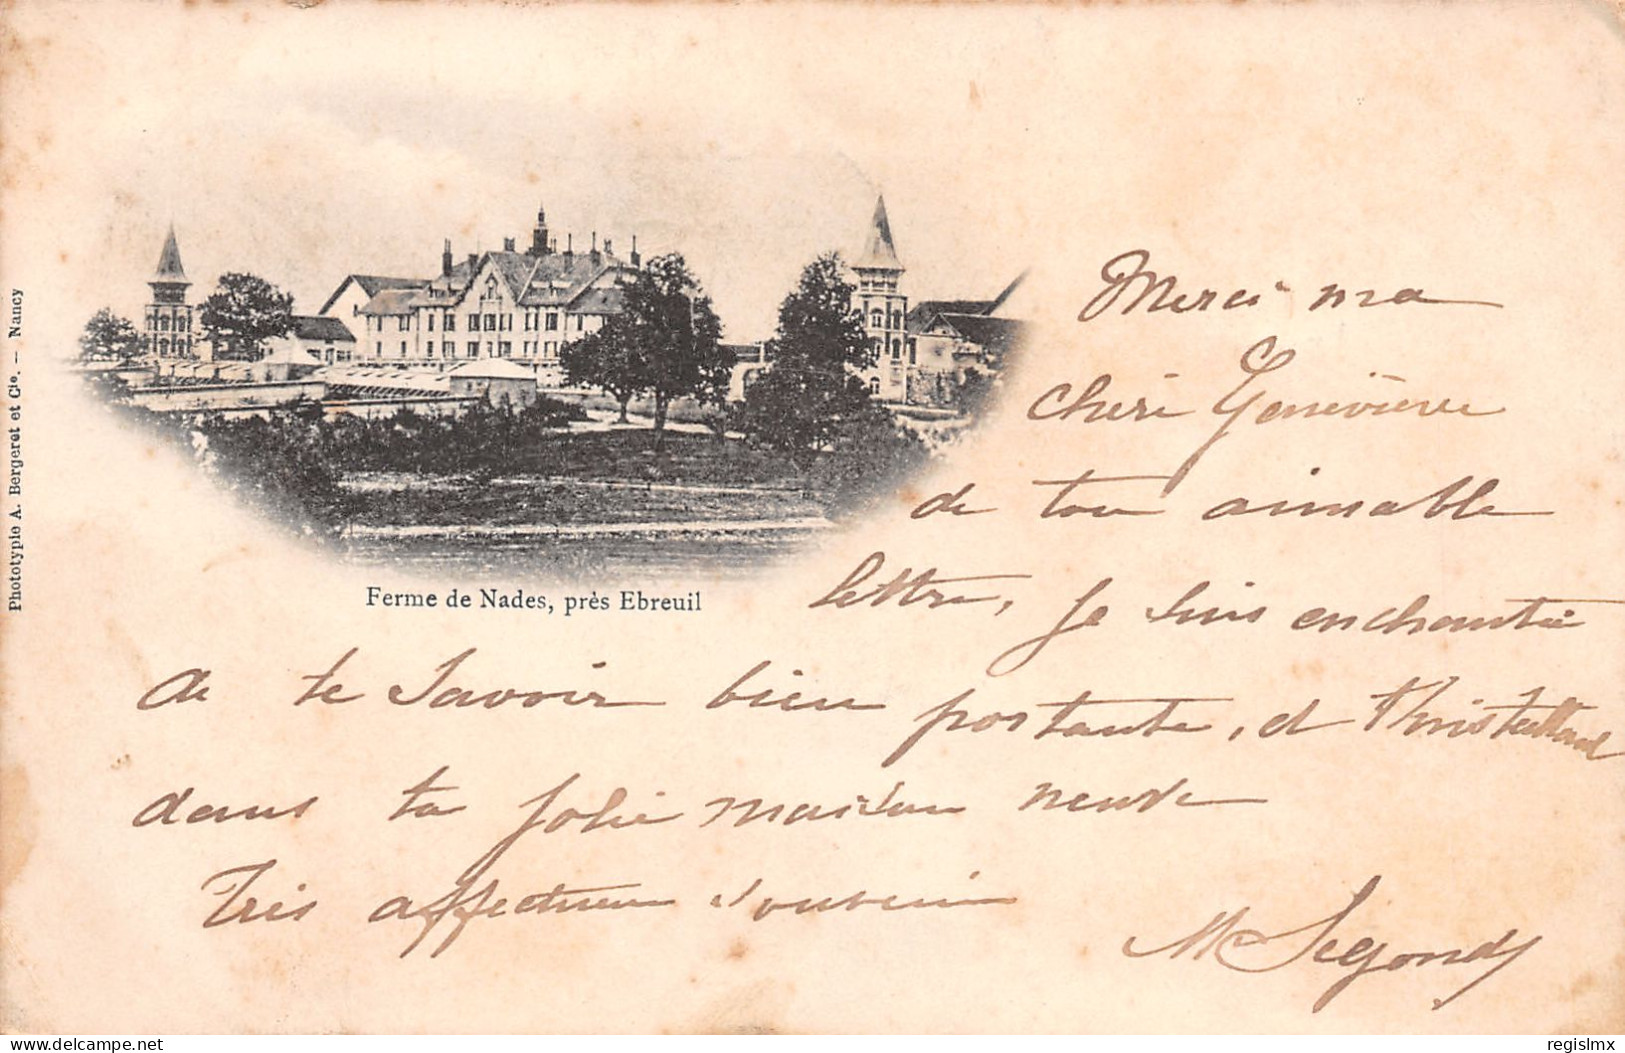 Merci ma
chéri Geneviève
de ton aimable
lettre, je suis enchantée
de te savoir bien portante, et
dans ta jolie maison neuve
Très affectueux souvenir
M Segond
Ferme de Nades, près Ebreuil
Phototypie A. Bergeret et Cie. — Nancy
www.delcampe.net
regislmx